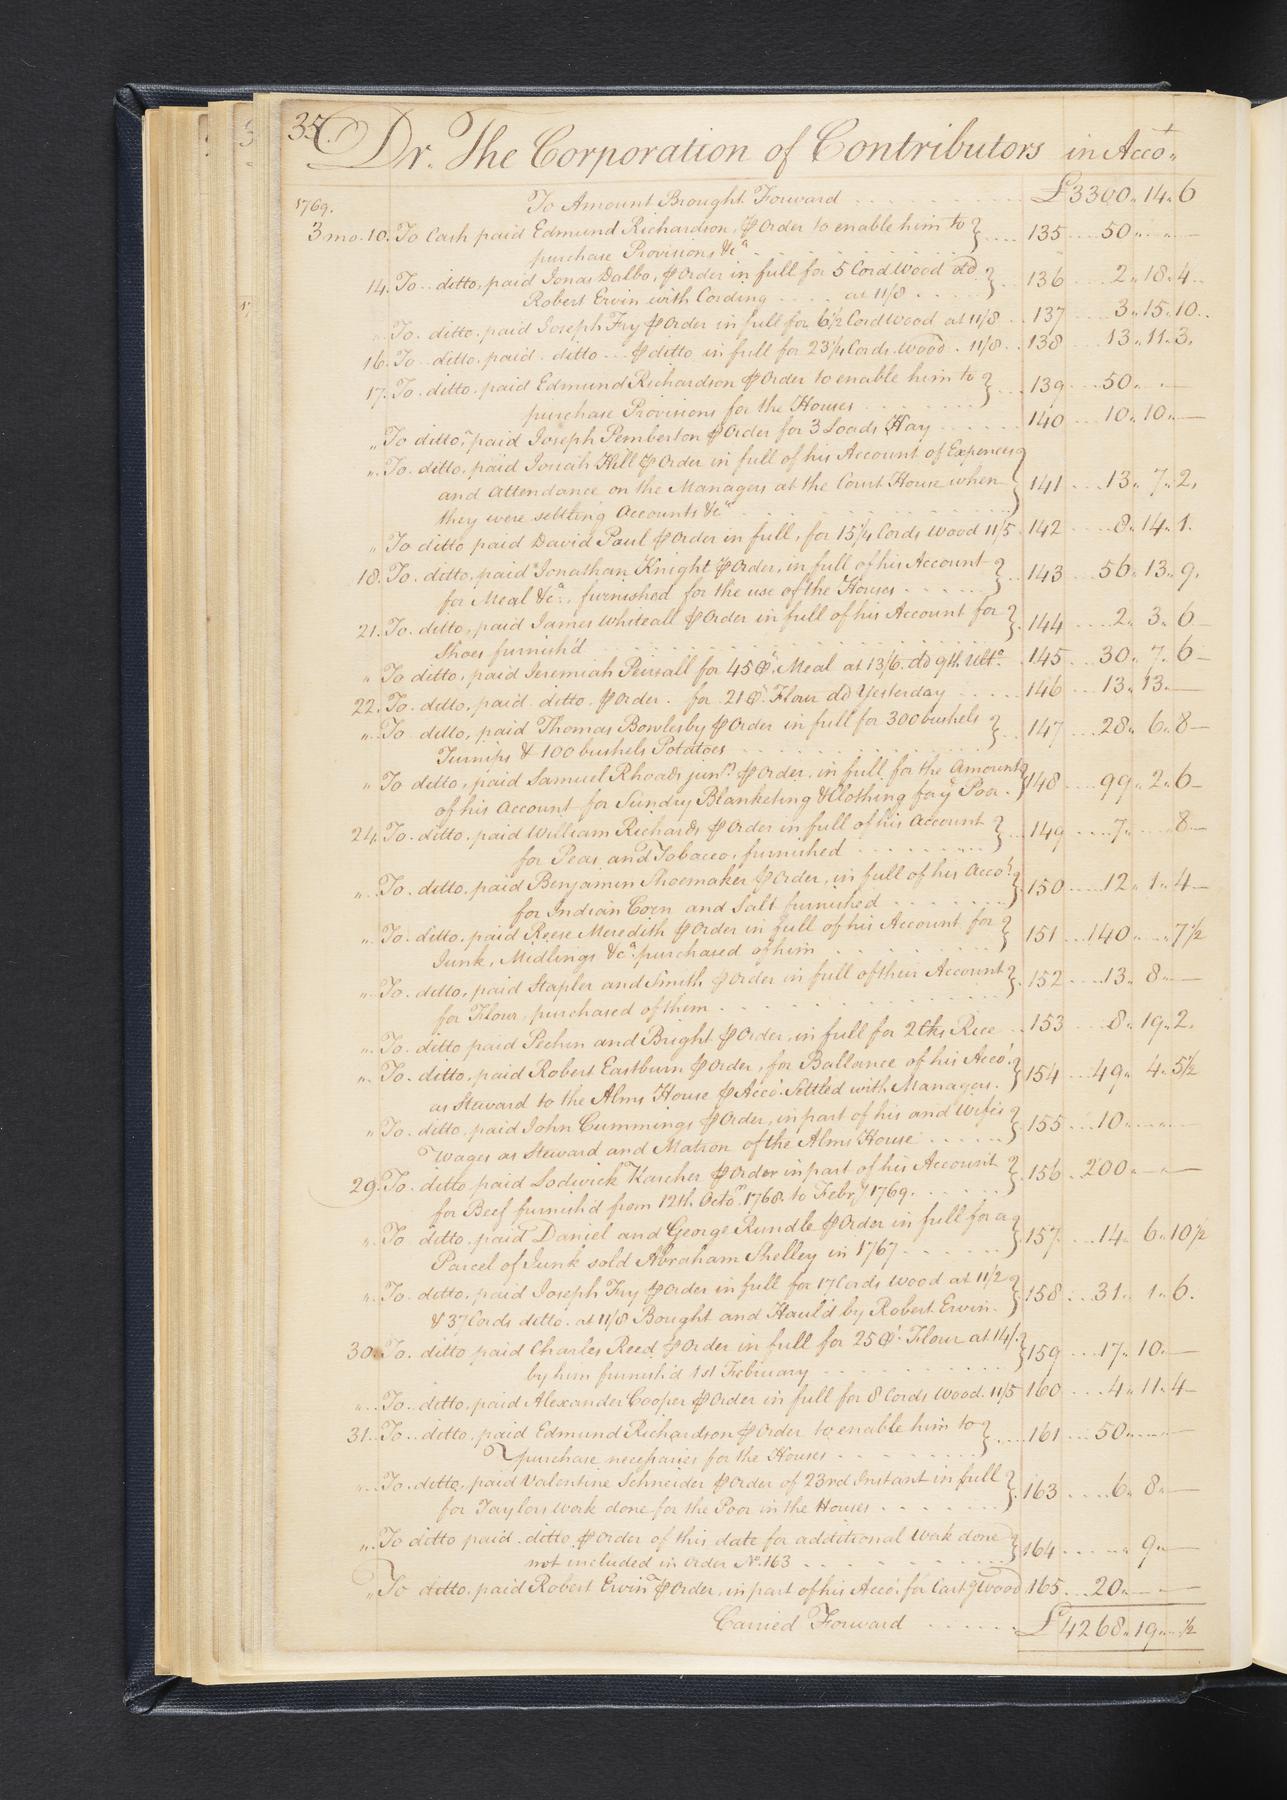 35.
Dr. The Corporation of Contributors in Acco.t
1769. To Amount Brought Forward £3300 „ 14 „ 6
3 mo. 10. To Cash paid Edmund Richardson, ⅌ Order to enable him to } 135 50 „ — „ —
purchase Provisions &c.a
14. To ditto, paid Jonas Dalbo, ⅌ Order in full for 5 Cord Wood dd } 136 2 „ 18 „ 4
Robert Erwin with Cording at 11/8
„ To ditto. paid Joseph Fry ⅌ Order in full for 6 1/2 Cord Wood at 11/8 137 3 „ 15 „ 10
16. To ditto. paid ditto ⅌ ditto in full for 23 1/4 Cords Wood. 11/8 138 13 „ 11 „ 3
17. To ditto. paid Edmund Richardson ⅌ Order to enable him to } 139 50 „ — „ —
purchase Provisions for the Houses
„ To ditto, paid Joseph Pemberton ⅌ Order for 3 Loads Hay 140 10 „ 10 „ —
„ To ditto, paid Josiah Hill ⅌ Order in full of his Account of Expences
and Attendance on the Managers at the Court House when } 141 13 „ 7 „ 2
they were settling Accounts &c.a
„ To ditto paid David Paul ⅌ Order in full, for 15 1/4 Cords Wood 11/5 142 8 „ 14 „ 1
18. To ditto, paid Jonathan Knight ⅌ Order, in full of his Account } 143 56 „ 13 „ 9
for Meal &c.a furnished for the use of the Houses
21. To ditto, paid James Whiteall ⅌ Order in full of his Account for } 144 2 „ 3 „ 6
Shoes furnish'd
„ To ditto, paid Jeremiah Pearsall for 45 Meal at 13/6. dd 9th Ult.o 145 30 „ 7 „ 6
22. To ditto, paid ditto, ⅌ Order. for 21 Flour dd Yesterday 146 13 „ 13 „ —
„ To ditto, paid Thomas Bowlesby ⅌ Order in full for 300 bushels } 147 28 „ 6 „ 8
Turnips & 100 bushels Potatoes
„ To ditto, paid Samuel Rhoads jun.r ⅌ Order, in full, for the Amount } 148 99 „ 2 „ 6
of his Account for Sundry Blanketing & Clothing for y.e Poor.
24. To ditto, paid William Richards ⅌ Order in full of his Account } 149 7 „ „ 8
for Peas and Tobacco, furnished
„ To ditto, paid Benjamin Shoemaker ⅌ Order, in full of his Acco.t } 150 12 „ 1 „ 4
for Indian Corn and Salt furnished
„ To ditto, paid Reese Meredith ⅌ Order in full of his Account for } 151 140 „ „ 7 1/2
Junk, Midlings &c.a purchased of him
„ To ditto, paid Stapler and Smith ⅌ Order in full of their Account } 152 13 „ 8 „ —
for Flour, purchased of them
„ To ditto paid Pechin and Bright ⅌ Order, in full for 2 tks Rice 153 8 „ 19 „ 2
„ To ditto, paid Robert Eastburn ⅌ Order, for Ballance of his Acco.t } 154 49 „ 4 „ 5 1/2
as Steward to the Alms House ⅌ Acco.t Settled with Managers.
„ To ditto, paid John Cummings ⅌ Order, in part of his and Wife's } 155 10 „ — „ —
Wages as Steward and Matron of the Alms House
29. To ditto, paid Lodwick Karcher ⅌ Order in part of his Account } 156 200 „ — „ —
for Beef furnish'd from 12th. Octo.r 1768. to Febr.y 1769.
„ To ditto. paid Daniel and George Rundle ⅌ Order in full for a } 157 14 „ 6 „ 10 1/2
Parcel of Junk sold Abraham Shelley in 1767
„ To ditto, paid Joseph Fry ⅌ Order in full for 17 Cords Wood at 11/2 } 158 31 „ 1 „ 6
& 37 Cords ditto. at 11/8 Bought and Haul'd by Robert Erwin.
30 To ditto paid Charles Reed ⅌ Order in full for 25 Flour at 14/. } 159 17 „ 10 „ —
by him furnish'd 1st February
„ To ditto, paid Alexander Cooper ⅌ Order in full for 8 Cords Wood. 11/5 160 4 „ 11 „ 4
31. To ditto, paid Edmund Richardson ⅌ Order to enable him to } 161 50 „ — „ —
purchase necessaries for the Houses
„ To ditto, paid Valentine Schneider ⅌ Order of 23rd Instant in full } 163 6 „ 8 „ —
for Taylors work done for the Poor in the Houses
„ To ditto paid ditto ⅌ Order of this date for additional Work done } 164 „ 9 „ —
not included in Order No. 163
„ To ditto, paid Robert Erwin ⅌ Order, in part of his Acco.t for Cart.g Wood 165 20 „ — „ —
Carried Forward £4268 „ 19 „ 1/2